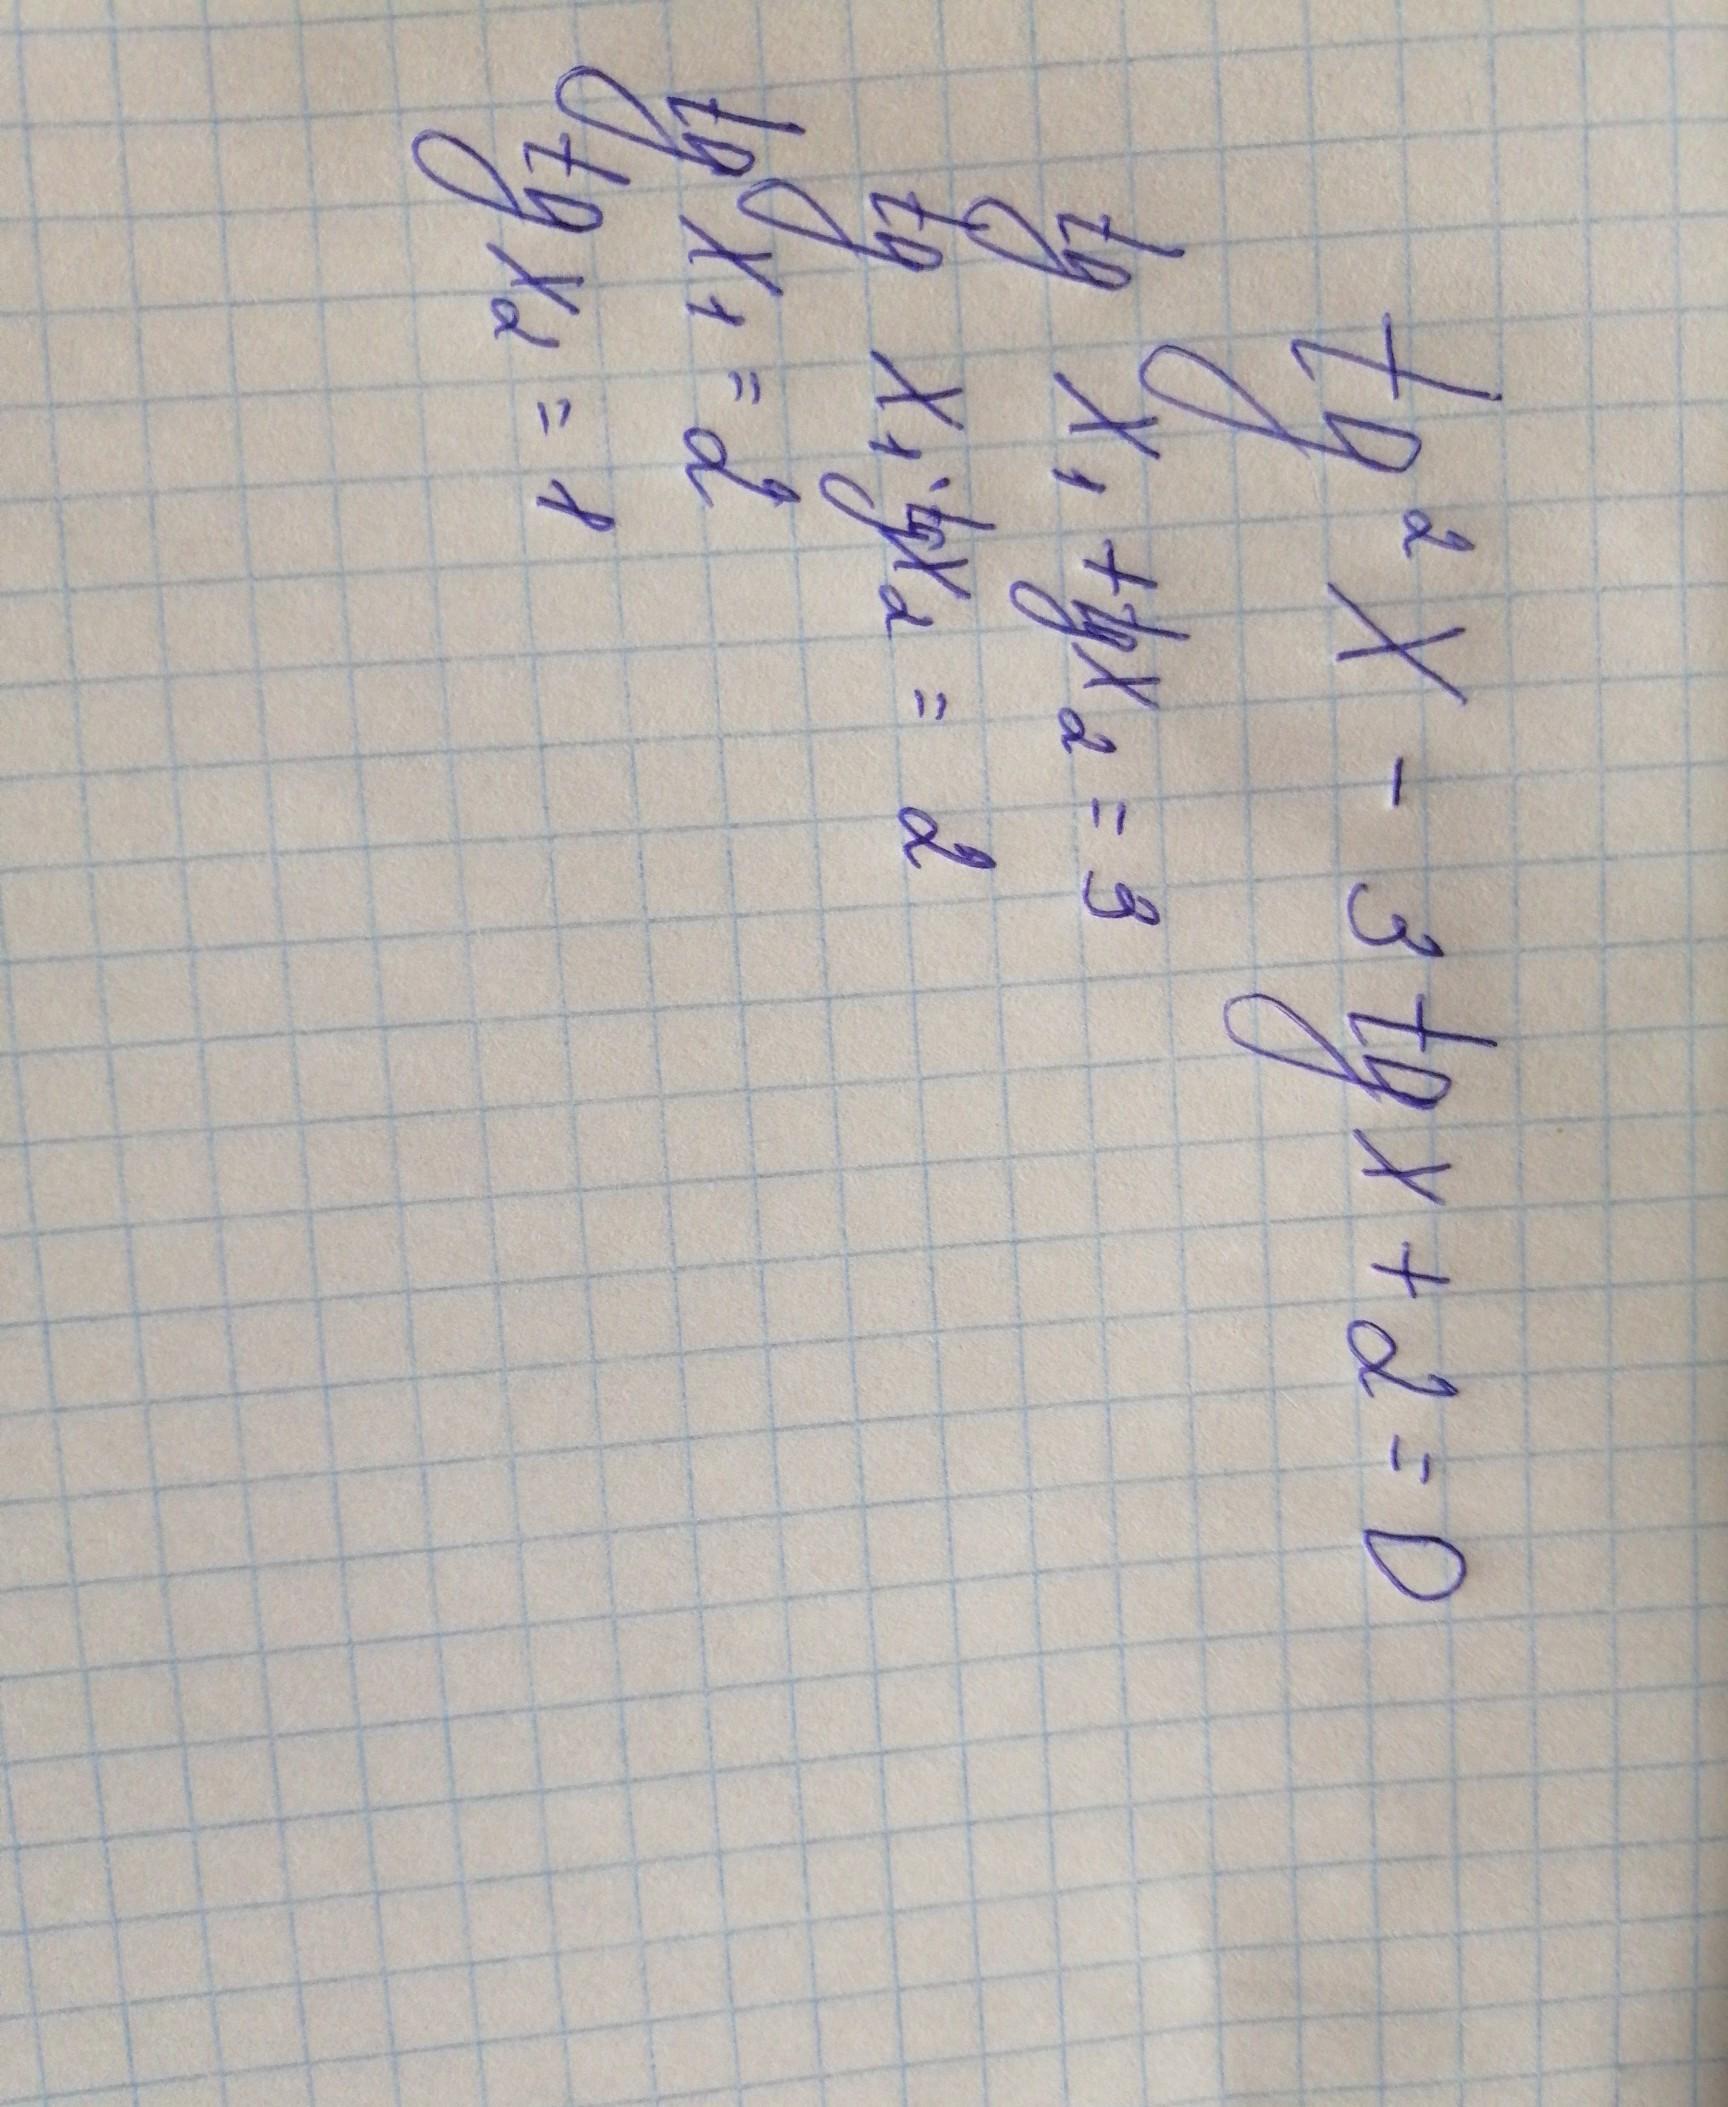 tg² x - 3 tg x + 2 = 0
tg x₁ + tg x₂ = 3
tg x₁ · tg x₂ = 2
tg x₁ = 2
tg x₂ = 1